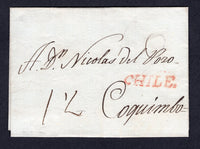 A Dn Nicolas del Pozo
CHILE.
12
Coquimbo